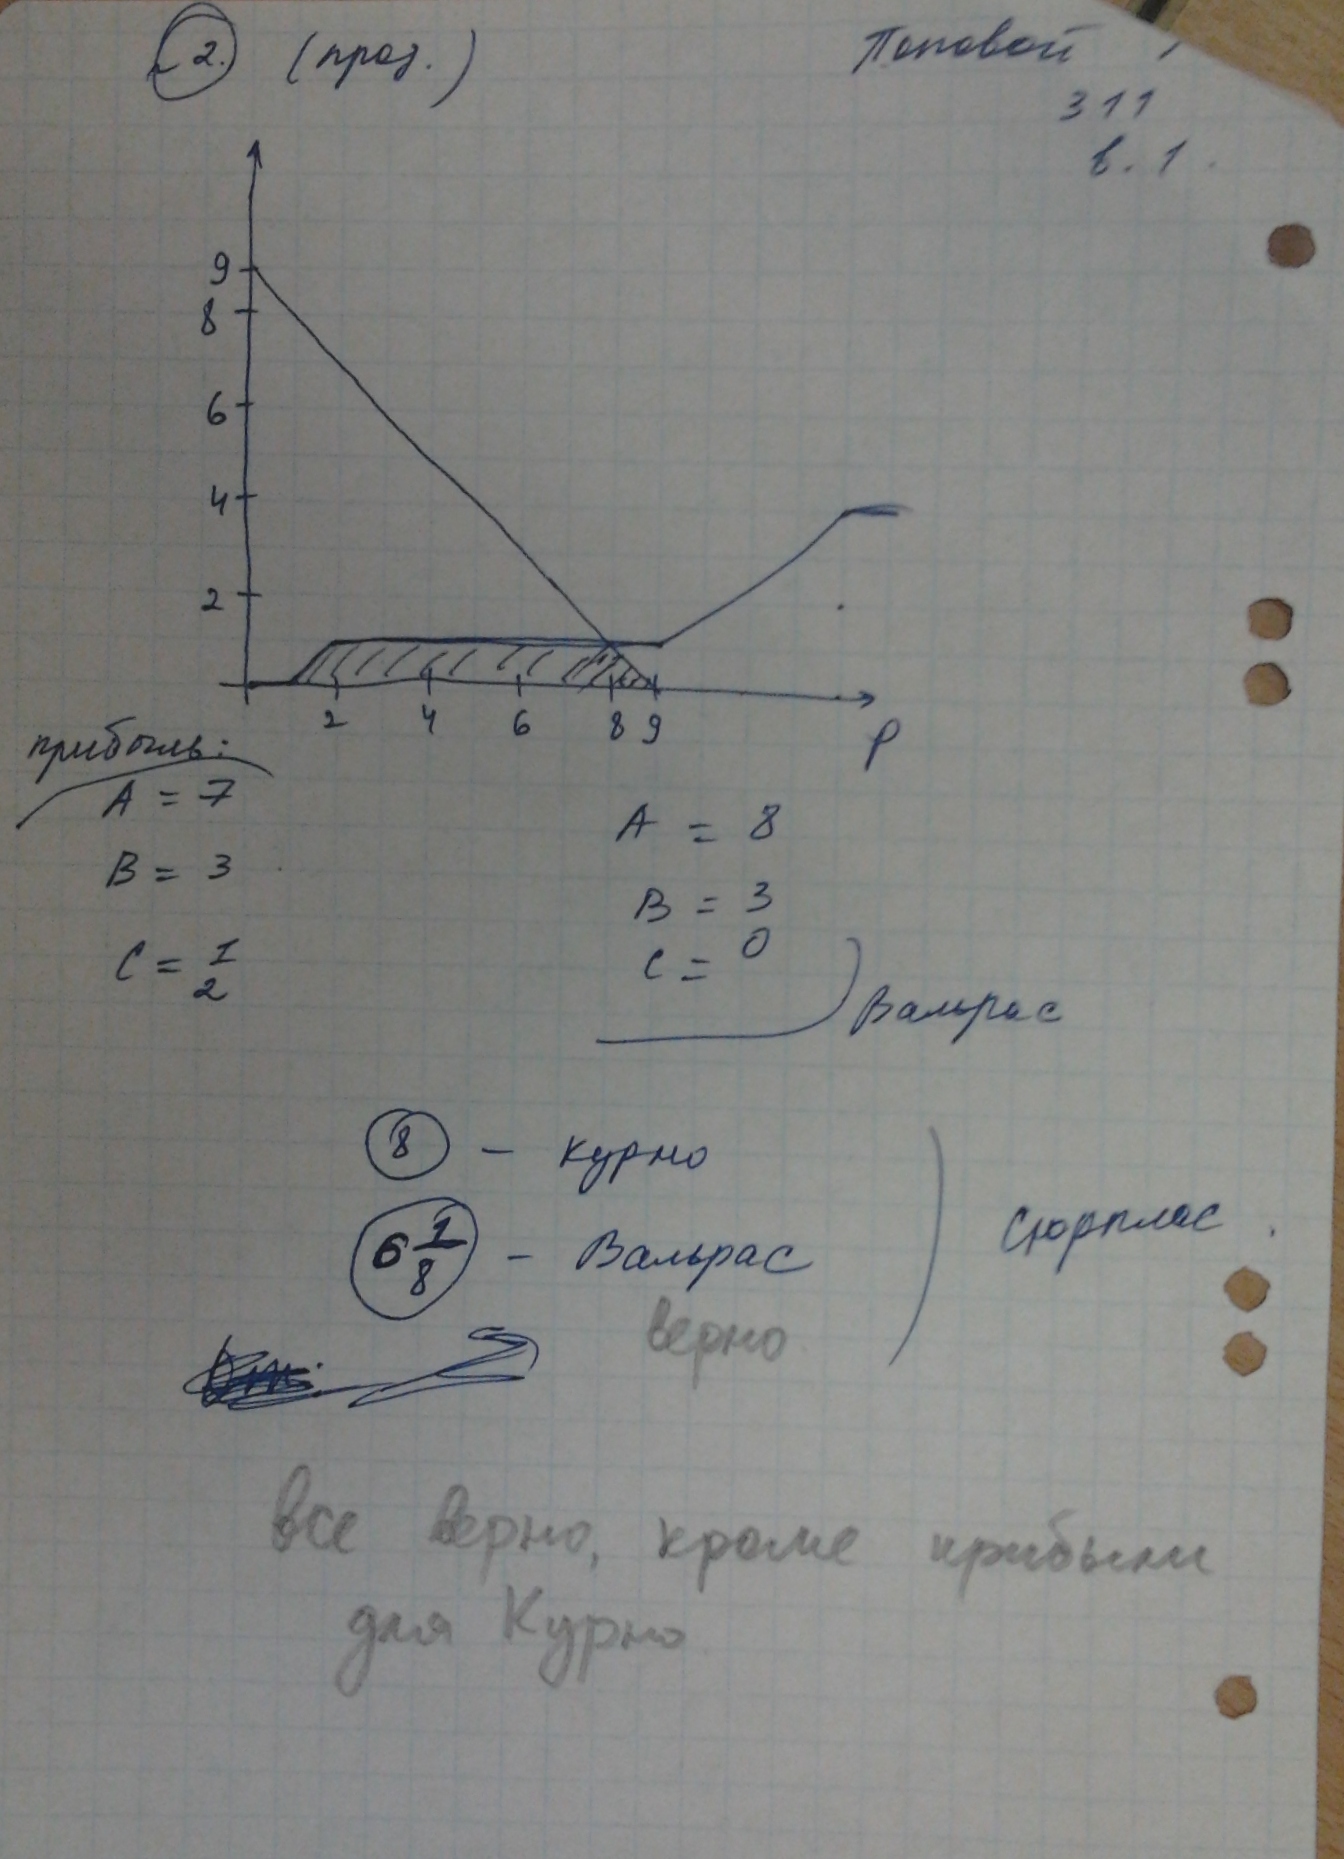 2. (прод.)
Поповой
311
в. 1.
9
8
6
4
2
2 4 6 8 9
P
прибыль:
A = 7
B = 3
C = 1/2
A = 8
B = 3
C = 0
Вальрас
8 - Курно
6 1/8 - Вальрас
Сюрплас.
верно
все верно, кроме прибыли
для Курно